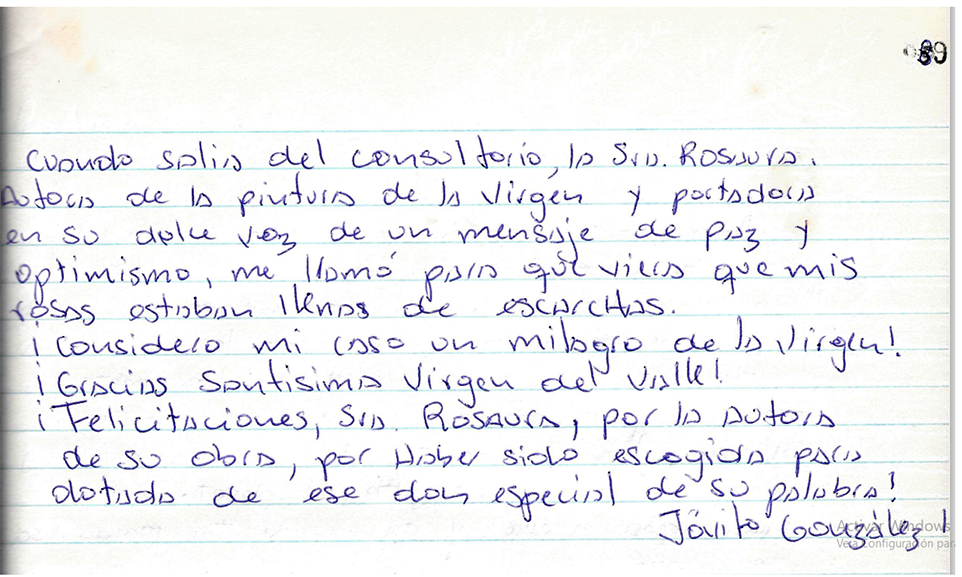 89
Cuando salia del consultorio, la Sra. Rosaura.
Autora de la pintura de la Virgen y portadora
en su dulce voz de un mensaje de paz y
optimismo, me llamó para qué viera que mis
rosas estaban llenas de escarchas.
¡Considero mi caso un milagro de la Virgen!
¡Gracias Santisima Virgen del Valle!
¡Felicitaciones, Sra. Rosaura, por la autora
de su obra, por Haber sido escogida para
dotada de ese don especial de su palabra!
González
Activar Windows
Ve a Configuración par